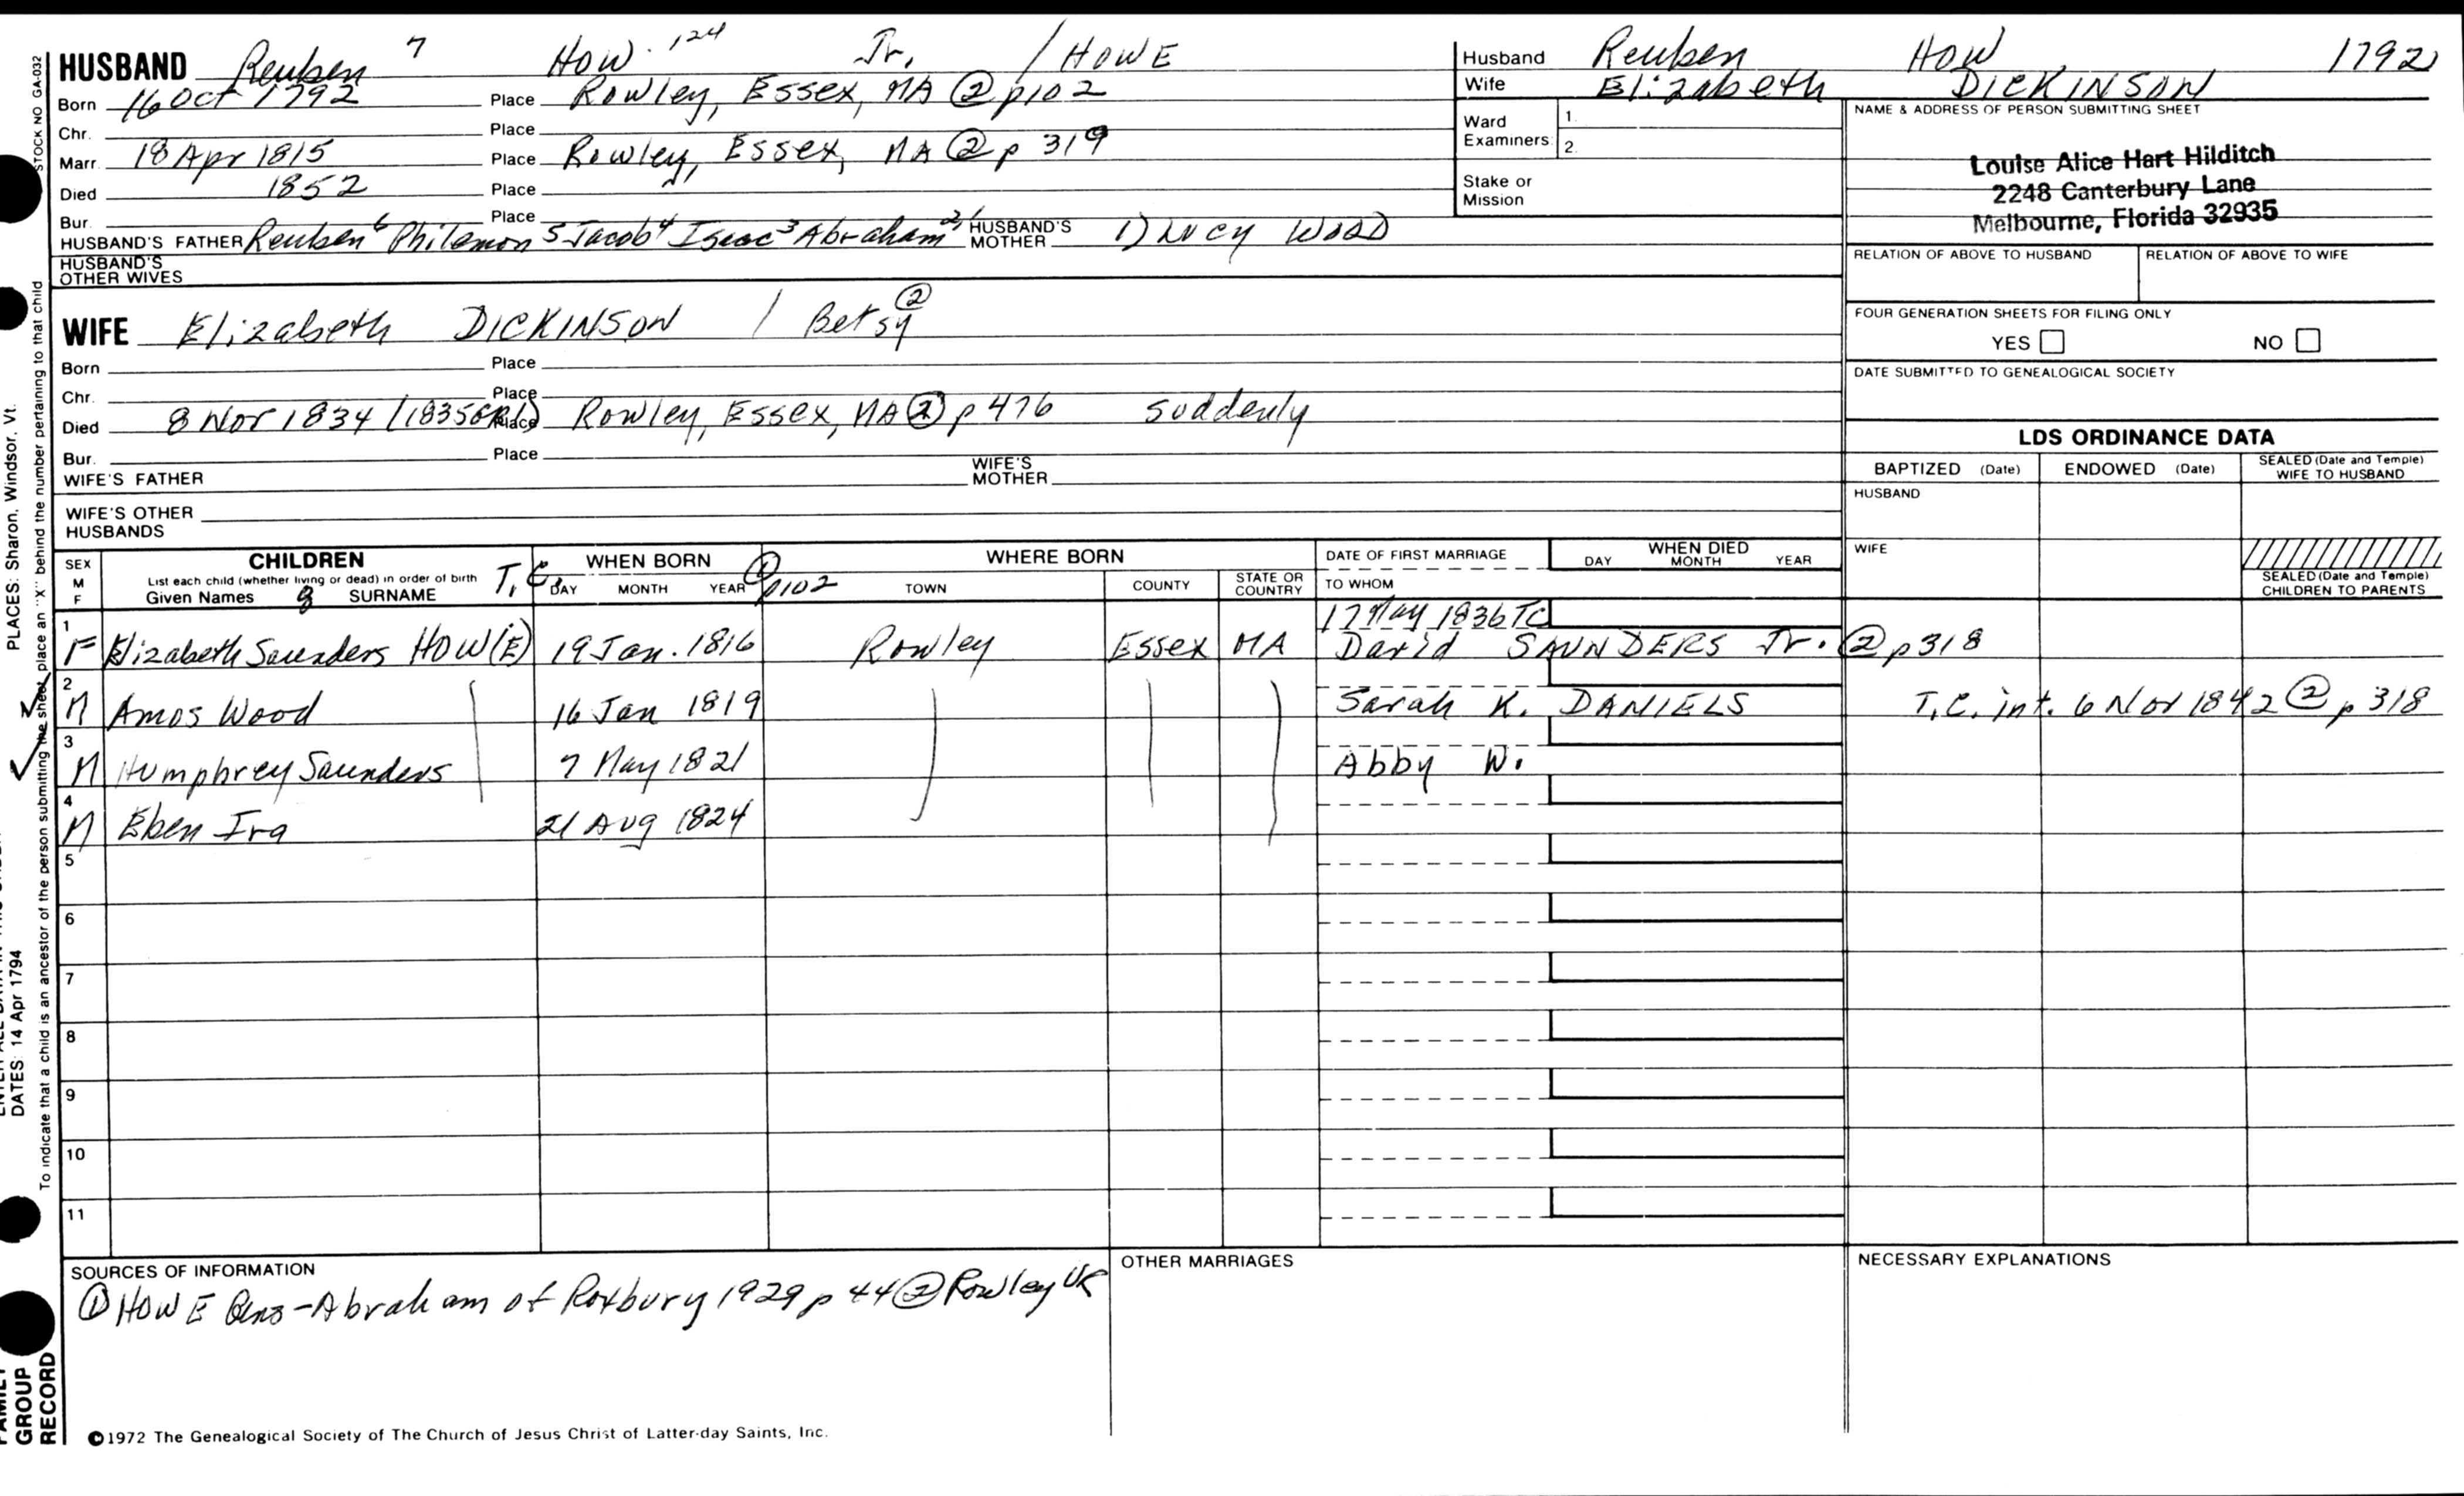 HUSBAND Reuben 7 How 124 Jr. / HOWE
Born 16 Oct 1792 Place Rowley, Essex, MA ② p102
Chr. Place
Marr. 18 Apr 1815 Place Rowley, Essex, MA ② p 319
Died 1852 Place
Bur. Place
HUSBAND'S FATHER Reuben 6 Philemon 5 Jacob 4 Isaac 3 Abraham 2, HUSBAND'S MOTHER 1) Lucy WOOD
HUSBAND'S OTHER WIVES
Husband Reuben HOW 1792
Wife Elizabeth DICKINSON
Ward Examiners: 1. 2.
Stake or Mission
NAME & ADDRESS OF PERSON SUBMITTING SHEET
Louise Alice Hart Hilditch
2248 Canterbury Lane
Melbourne, Florida 32935
RELATION OF ABOVE TO HUSBAND RELATION OF ABOVE TO WIFE
FOUR GENERATION SHEETS FOR FILING ONLY
YES NO
DATE SUBMITTED TO GENEALOGICAL SOCIETY
WIFE Elizabeth DICKINSON / Betsy ②
Born Place
Chr. Place
Died 8 Nov 1834 / (1835 Place Rowley, Essex, MA ② p 476 suddenly
Bur. Place
WIFE'S FATHER WIFE'S MOTHER
WIFE'S OTHER HUSBANDS
LDS ORDINANCE DATA
BAPTIZED (Date) ENDOWED (Date) SEALED (Date and Temple) WIFE TO HUSBAND
HUSBAND
WIFE
SEALED (Date and Temple) CHILDREN TO PARENTS
SEX M F
CHILDREN
List each child (whether living or dead) in order of birth
Given Names 8 SURNAME T.C.
WHEN BORN DAY MONTH YEAR p102
WHERE BORN TOWN COUNTY STATE OR COUNTRY
DATE OF FIRST MARRIAGE TO WHOM
WHEN DIED DAY MONTH YEAR
17 May 1836 TC
1 F Elizabeth Saunders HOW(E) 19 Jan. 1816 Rowley Essex MA David SAUNDERS Jr. ② p 318
2 M Amos Wood 16 Jan 1819 Sarah K. DANIELS T.C. int. 6 Nov 1842 ② p 318
3 M Humphrey Saunders 7 May 1821 Abby W.
4 M Eben Ira 21 Aug 1824
5
6
7
8
9
10
11
SOURCES OF INFORMATION
① HOWE Gens - Abraham of Roxbury 1929 p 44 ② Rowley VR
OTHER MARRIAGES
NECESSARY EXPLANATIONS
©1972 The Genealogical Society of The Church of Jesus Christ of Latter-day Saints, Inc.
STOCK NO GA-032
To indicate that a child is an ancestor of the person submitting the sheet, place an "X" behind the number pertaining to that child
PLACES: Sharon, Windsor, Vt.
DATES: 14 Apr 1794
GROUP
RECORD